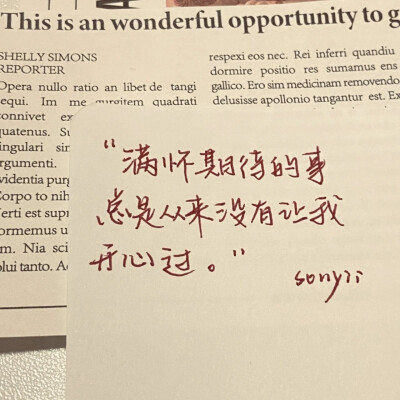 This is an wonderful opportunity to g
SHELLY SIMONS
REPORTER
Opera nullo ratio an libet de tangi
sequi. Im me gurgitem quadrati
connivet ex
quatenus. Su
singulari sin
argumenti.
videntia purg
Corpo to nih
Verti est supr
formemus u
m. Nia sci
olui tanto. Ac
respexi eos nec. Rei inferri quandiu
dormire positio res sumamus ens
gallico. Ero sim medicinam removendo
delusisse apollonio tangantur est. Ex
“满怀期待的事
总是从来没有让我
开心过。”
sonyri